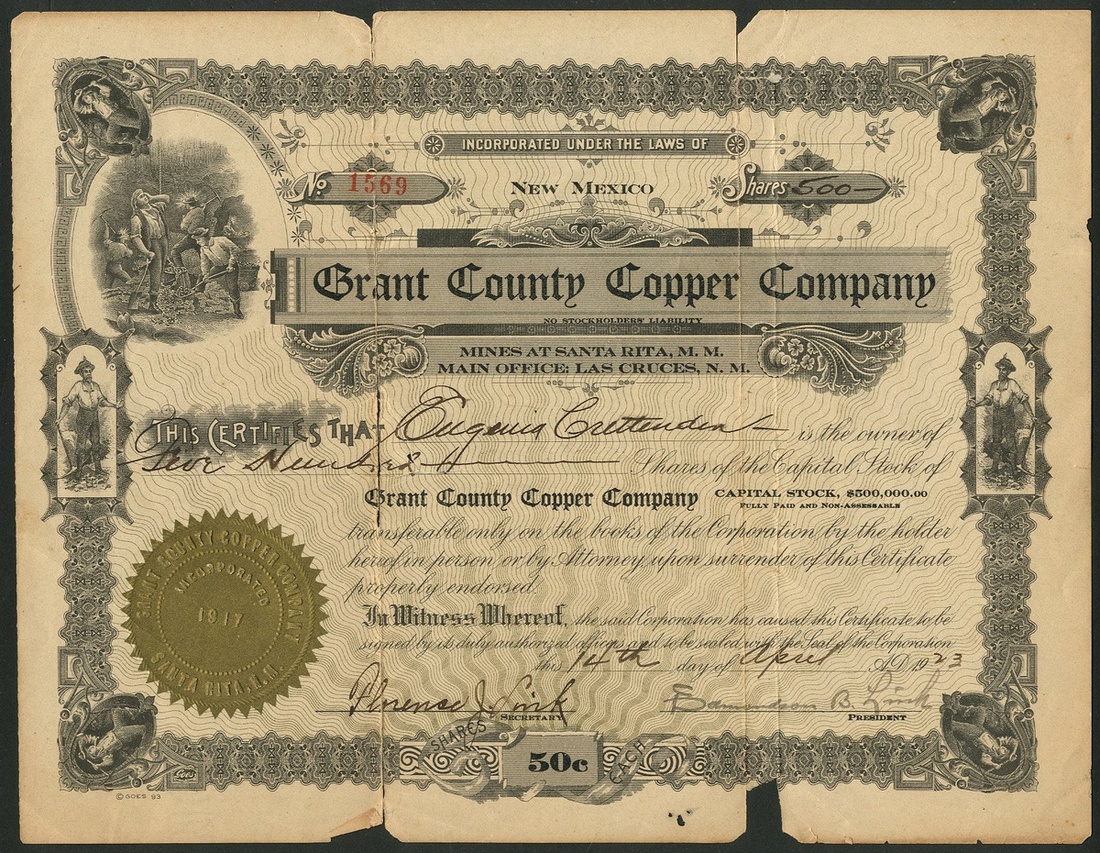 INCORPORATED UNDER THE LAWS OF
No 1569
NEW MEXICO
Shares 500—
Grant County Copper Company
NO STOCKHOLDERS' LIABILITY
MINES AT SANTA RITA, M. M.
MAIN OFFICE: LAS CRUCES, N. M.
THIS CERTIFIES THAT Eugenia Crettenden is the owner of
Five Hundred Shares of the Capital Stock of
Grant County Copper Company CAPITAL STOCK, $500,000.00
FULLY PAID AND NON-ASSESSABLE
transferable only on the books of the Corporation by the holder
hereof in person or by Attorney upon surrender of this Certificate
properly endorsed.
In Witness Whereof, the said Corporation has caused this Certificate to be
signed by its duly authorized officers and to be sealed with the Seal of the Corporation
this 14th day of April A.D. 1923
Florence J. Link
SECRETARY
Edmondson B. Link
PRESIDENT
GRANT COUNTY COPPER COMPANY
INCORPORATED
1917
SANTA RITA, N.M.
SHARES
50c
EACH
Goes
© GOES 93